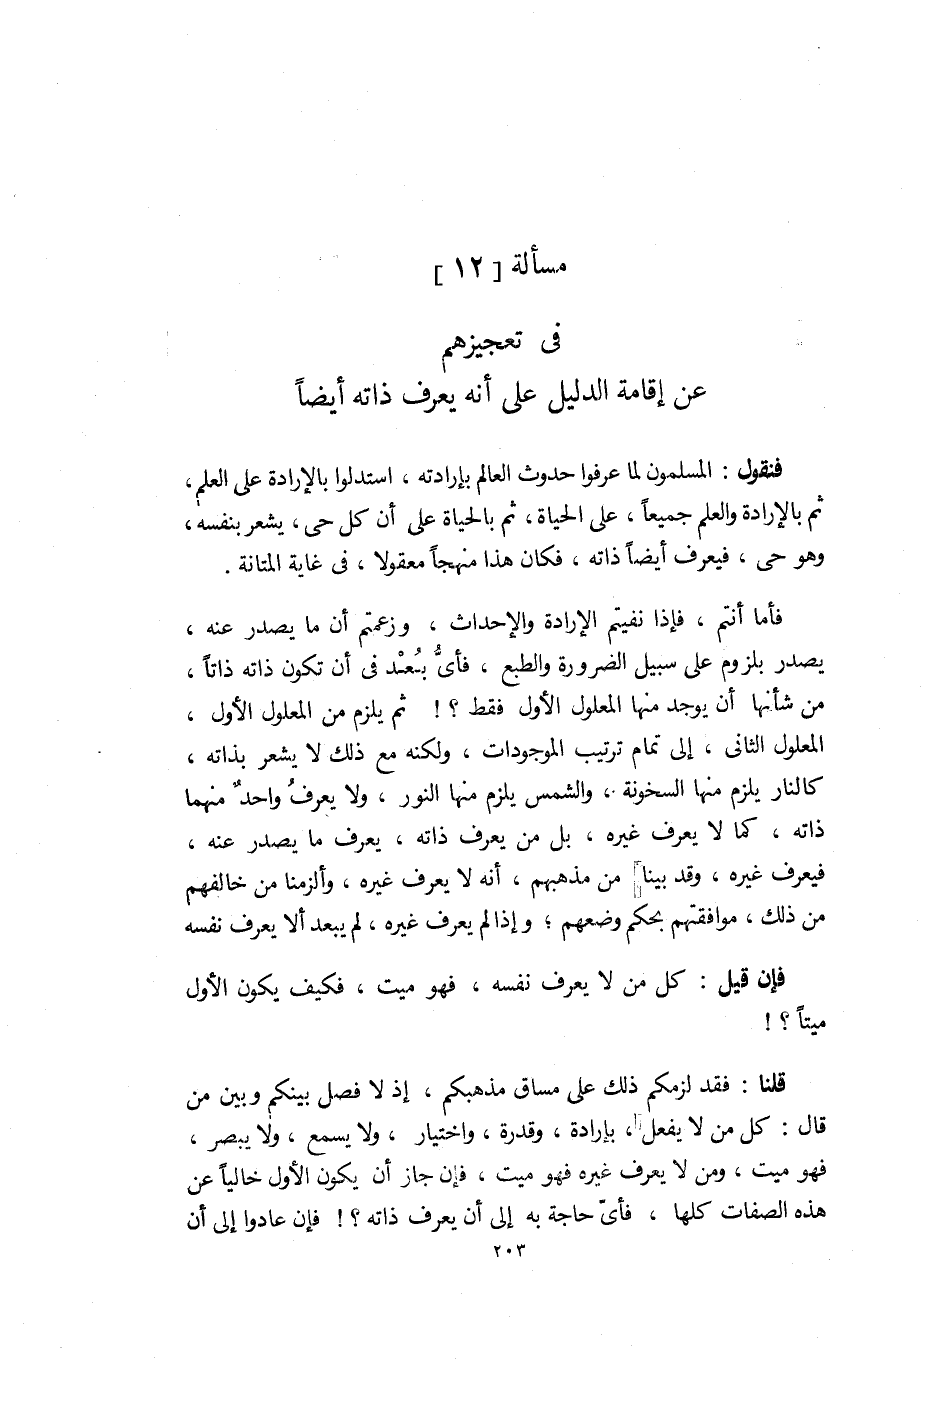 مسألة [ ١٢ ]
فى تعجيزهم
عن إقامة الدليل على أنه يعرف ذاته أيضاً
فنقول : المسلمون لما عرفوا حدوث العالم بإرادته ، استدلوا بالإرادة على العلم ،
ثم بالإرادة والعلم جميعاً ، على الحياة ، ثم بالحياة على أن كل حى ، يشعر بنفسه ،
وهو حى ، فيعرف أيضاً ذاته ، فكان هذا منهجاً معقولا ، فى غاية المتانة .
فأما أنتم ، فإذا نفيتم الإرادة والإحداث ، وزعمتم أن ما يصدر عنه ،
يصدر بلزوم على سبيل الضرورة والطبع ، فأىُّ بُعْد فى أن تكون ذاته ذاتاً ،
من شأنها أن يوجد منها المعلول الأول فقط ؟ ! ثم يلزم من المعلول الأول ،
المعلول الثانى ، إلى تمام ترتيب الموجودات ، ولكنه مع ذلك لا يشعر بذاته ،
كالنار يلزم منها السخونة ، والشمس يلزم منها النور ، ولا يعرفُ واحدٌ منهما
ذاته ، كما لا يعرف غيره ، بل من يعرف ذاته ، يعرف ما يصدر عنه ،
فيعرف غيره ، وقد بينا من مذهبهم ، أنه لا يعرف غيره ، وألزمنا من خالفهم
من ذلك ، موافقتهم بحكم وضعهم ؛ وإذا لم يعرف غيره ، لم يبعد ألا يعرف نفسه
فإن قيل : كل من لا يعرف نفسه ، فهو ميت ، فكيف يكون الأول
ميتاً ؟ !
قلنا : فقد لزمكم ذلك على مساق مذهبكم ، إذ لا فصل بينكم وبين من
قال : كل من لا يفعل ، بإرادة ، وقدرة ، واختيار ، ولا يسمع ، ولا يبصر ،
فهو ميت ، ومن لا يعرف غيره فهو ميت ، فإن جاز أن يكون الأول خالياً عن
هذه الصفات كلها ، فأىّ حاجة به إلى أن يعرف ذاته ؟ ! فإن عادوا إلى أن
٢٠٣